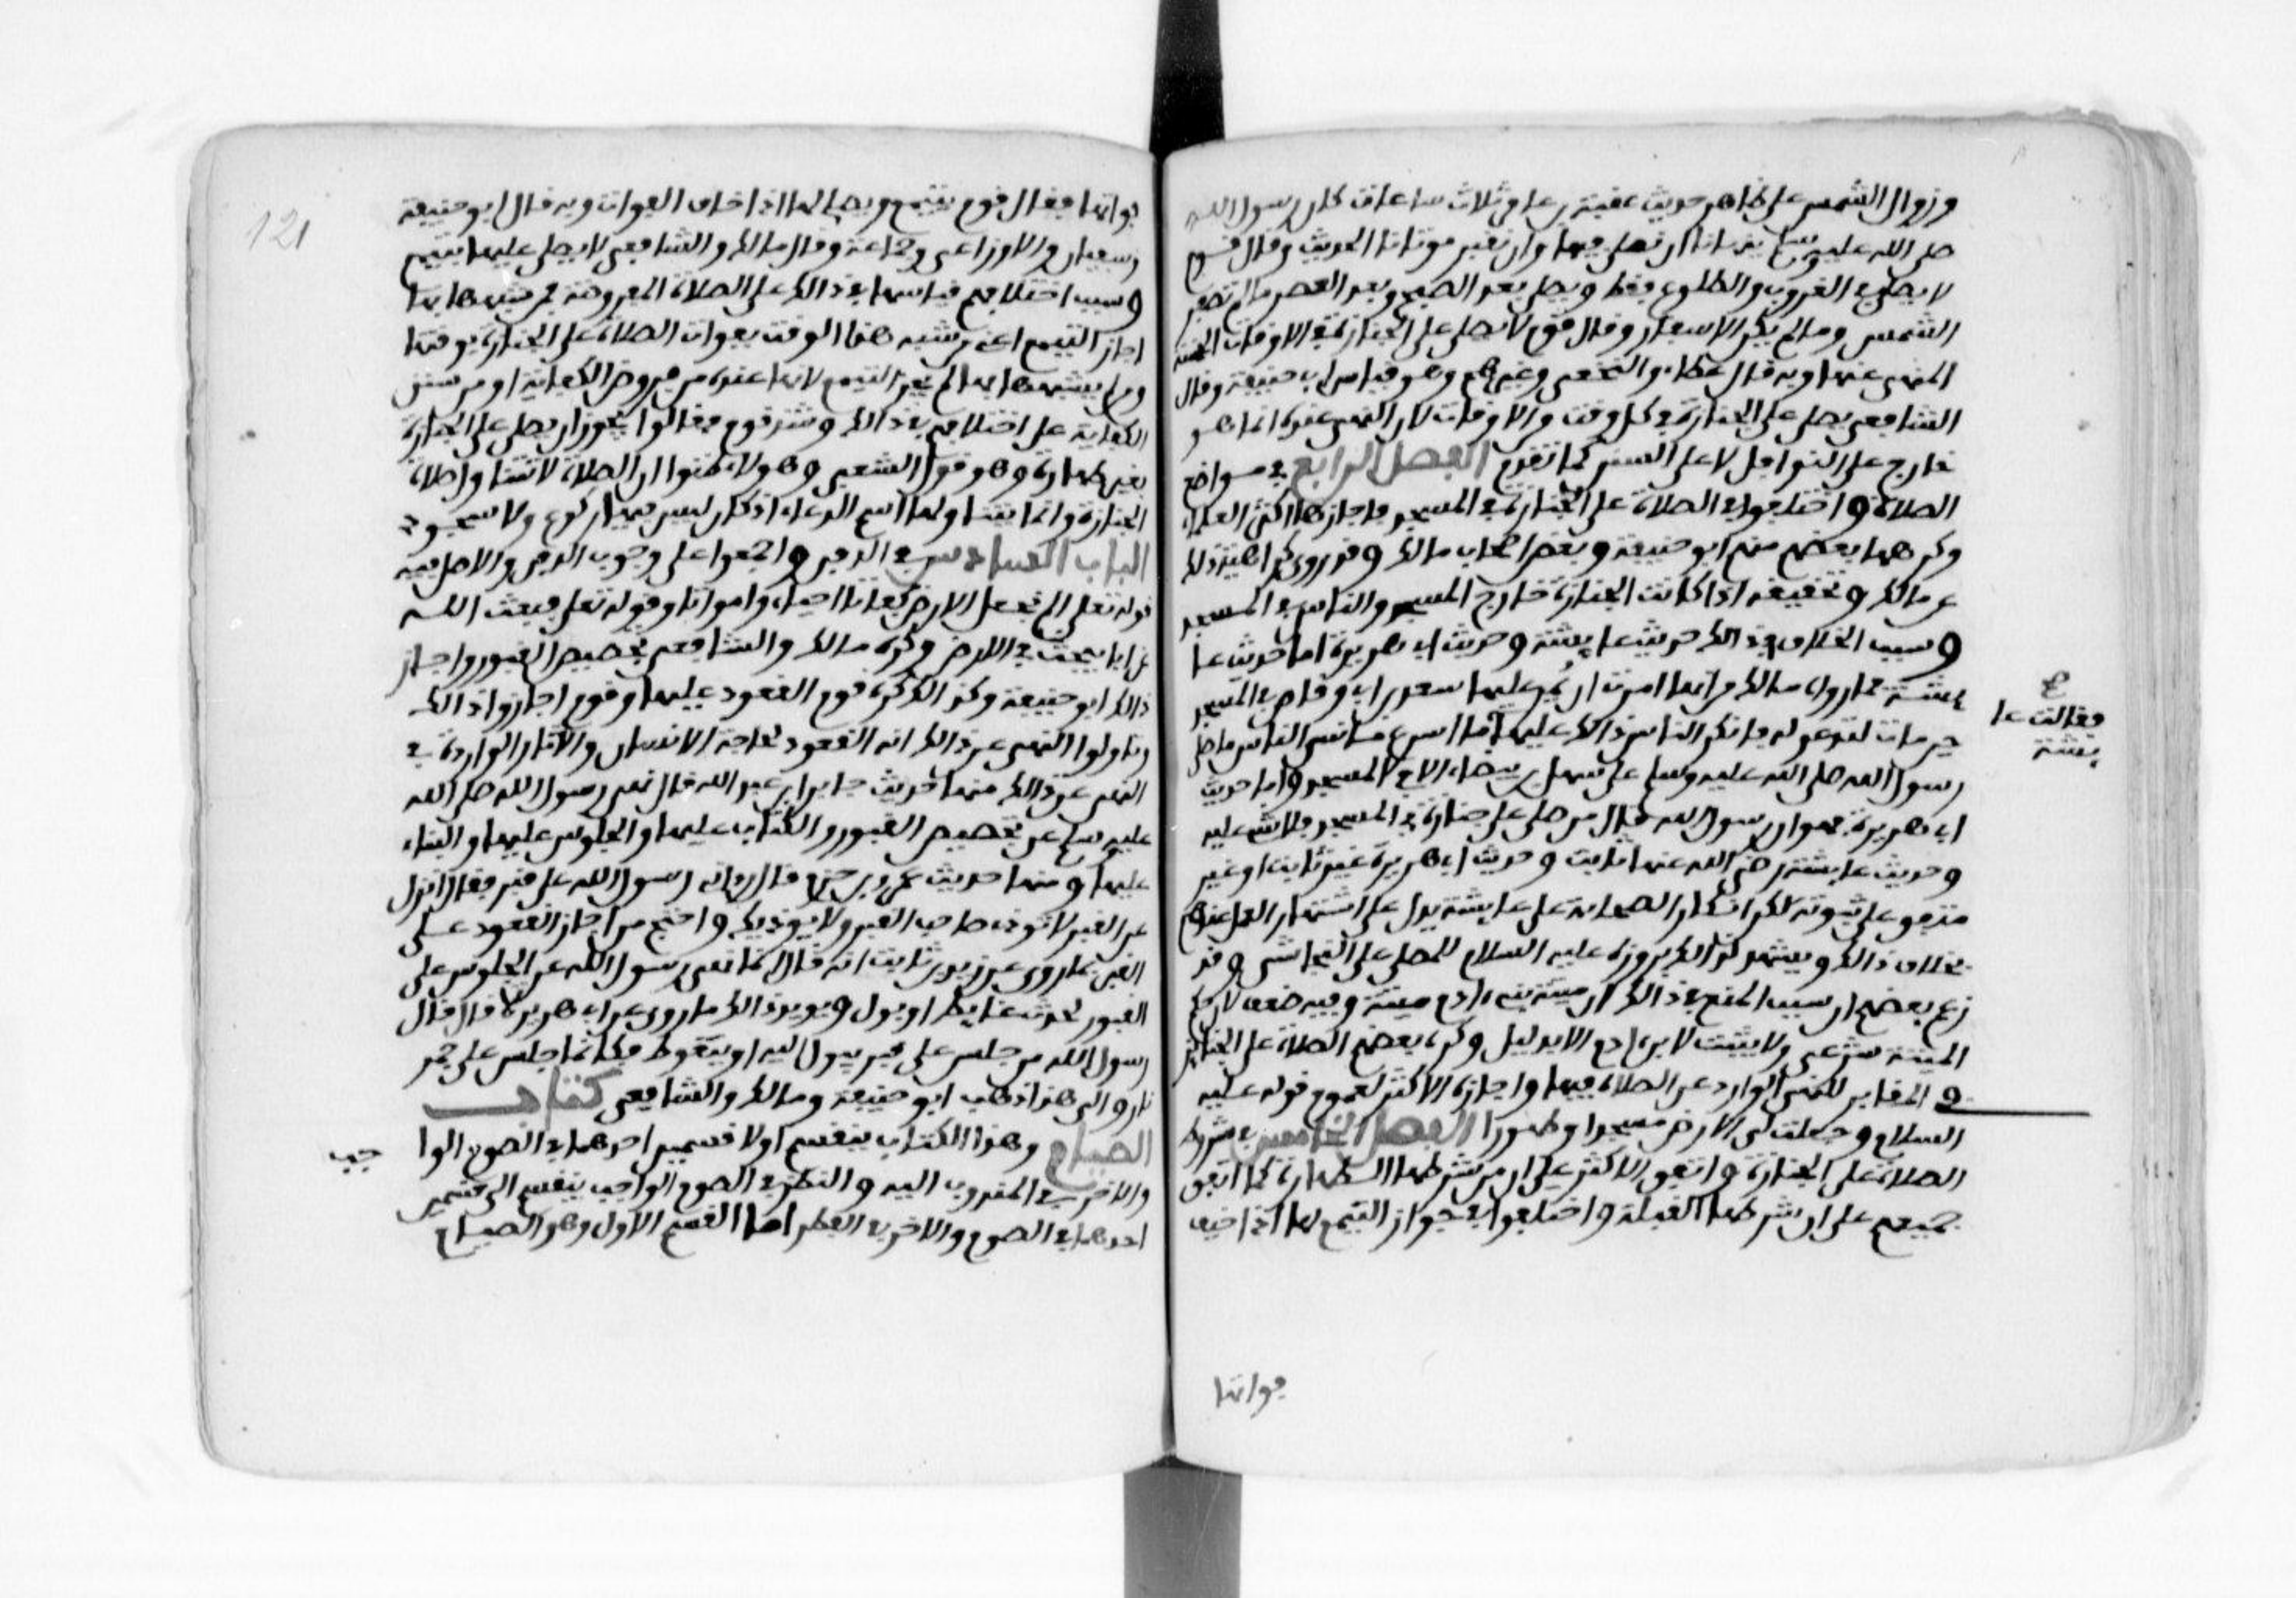 وزوال الشمس على ظاهر حديث عقبة بن عامر ثلاث ساعات كان رسول الله
صلى الله عليه وسلم ينهانا ان نصلي فيها وان نقبر موتانا الحديث وقال قوم
لا يصلى في الغروب والطلوع فقط ويصلى بعد الصبح وبعد العصر ما لم تصفر
الشمس وما لم يكن الاسفار وقال قوم لا يصلى على الجنازة في الاوقات الخمسة
المنهي عنها وبه قال عطاء والنخعي وغيرهم وهو قياس ابي حنيفة وقال
الشافعي يصلى على الجنازة في كل وقت والاوقات لان النهي عنده انما هو
خارج على النوافل لا على السنن كما تقدم الفصل الرابع في مواضع
الصلاة واختلفوا في الصلاة على الجنازة في المسجد فاجازها اكثر العلماء
وكرهها بعضهم منهم ابو حنيفة وبعض اصحاب مالك وقد روي كراهية ذلك
عن مالك وتحقيقه اذا كانت الجنازة خارج المسجد والناس في المسجد
وسبب الخلاف في ذالك حديث عايشة وحديث ابي هريرة اما حديث عا
يشة فما رواه مالك من انها امرت ان يمر عليها بسعد بن ابي وقاص في المسجد
حين مات لتدعو له فانكر الناس ذالك عليها ما اسرع ما نسي الناس ما صلى
فقالت عا
يشة
رسول الله صلى الله عليه وسلم على سهل بن بيضاء الا في المسجد واما حديث
ابي هريرة فهو ان رسول الله قال من صلى على جنازة في المسجد فلا شيء عليه
وحديث عايشة رضي الله عنها ثابت وحديث ابي هريرة غير ثابت او غير
متفق على ثبوته لكن انكار الصحابة على عايشة يدل على اشتهار العمل عندهم
بخلاف ذالك ويشهد لذالك بروزه عليه السلام للمصلى على النجاشي وقد
زعم بعضهم ان سبب المنع في ذالك ان ميتة بني ادم ميتة وفيه ضعف لان حكم
الميتة شرعي ولا يثبت لابن ادم الا بدليل وكره بعضهم الصلاة على الجنائز
في المقابر للنهي الوارد عن الصلاة فيها واجازه الاكثر لعموم قوله عليه
السلام وجعلت لي الارض مسجدا وطهورا الفصل الخامس في شروط
الصلاة على الجنازة واتفق الاكثر على ان من شرطها الطهارة كما اتفق
جميعهم على ان شرطها القبلة واختلفوا في جواز التيمم لها اذا خيف
فواتها
121
فواتها فقال قوم يتيمم ويصلي لها اذا خاف الفوات وبه قال ابو حنيفة
وسفيان والاوزاعي وجماعة وقال مالك والشافعي لا يصلى عليها بتيمم
وسبب اختلافهم قياسها في ذالك على الصلاة المفروضة فمن شبهها بها
اجاز التيمم اعني من شبه هذا الوقت بفوات الصلاة على الجنازة بوقتها
ومن لم يشبهها بها لم يجز التيمم لانها عنده من فروض الكفاية او من سنن
الكفاية على اختلافهم في ذالك وشذ قوم فقالوا يجوز ان يصلى على الجنازة
بغير طهارة وهو قول الشعبي وهولاء ظنوا ان الصلاة لا تتناول صلاة
الجنازة وانما يتناولها اسم الدعاء اذ كان ليس فيها ركوع ولا سجود
الباب السادس في الدفن واجمعوا على وجوب الدفن والاصل فيه
قوله تعلى الم نجعل الارض كفاتا احياء وامواتا وقوله تعلى فبعث الله
غرابا يبحث في الارض وكره مالك والشافعي تجصيص القبور واجاز
ذالك ابو حنيفة وكذالك كره قوم القعود عليها وقوم اجازوا ذالك
وتاولوا النهي عن ذالك انه القعود لحاجة الانسان والاثار الواردة في
النهي عن ذالك منها حديث جابر ابن عبد الله قال نهى رسول الله صلى الله
عليه سلم عن تجصيص القبور والكتاب عليها والجلوس عليها والبناء
عليها ومنها حديث عمرو بن حزم قال رءاني رسول الله على قبر فقال انزل
عن القبر لا توذ صاحب القبر ولا يوذيك واحتج من اجاز القعود على
القبر بما روي عن زيد بن ثابت انه قال انما نهى رسول الله عن الجلوس على
القبور لحدث غايط او بول ويويد ذالك ما روي عن ابي هريرة قال قال
رسول الله من جلس على قبر يبول اليه او يتغوط فكانما جلس على جمر
نار والى هذا ذهب ابو حنيفة ومالك والشافعي كتاب
الصيام وهذا الكتاب ينقسم اولا قسمين احدهما في الصوم الوا
جب
والاخر في المندوب اليه والنظر في الصوم الواجب ينقسم الى قسمين
احدهما في الصوم والاخر في الفطر اما القسم الاول وهو الصيام